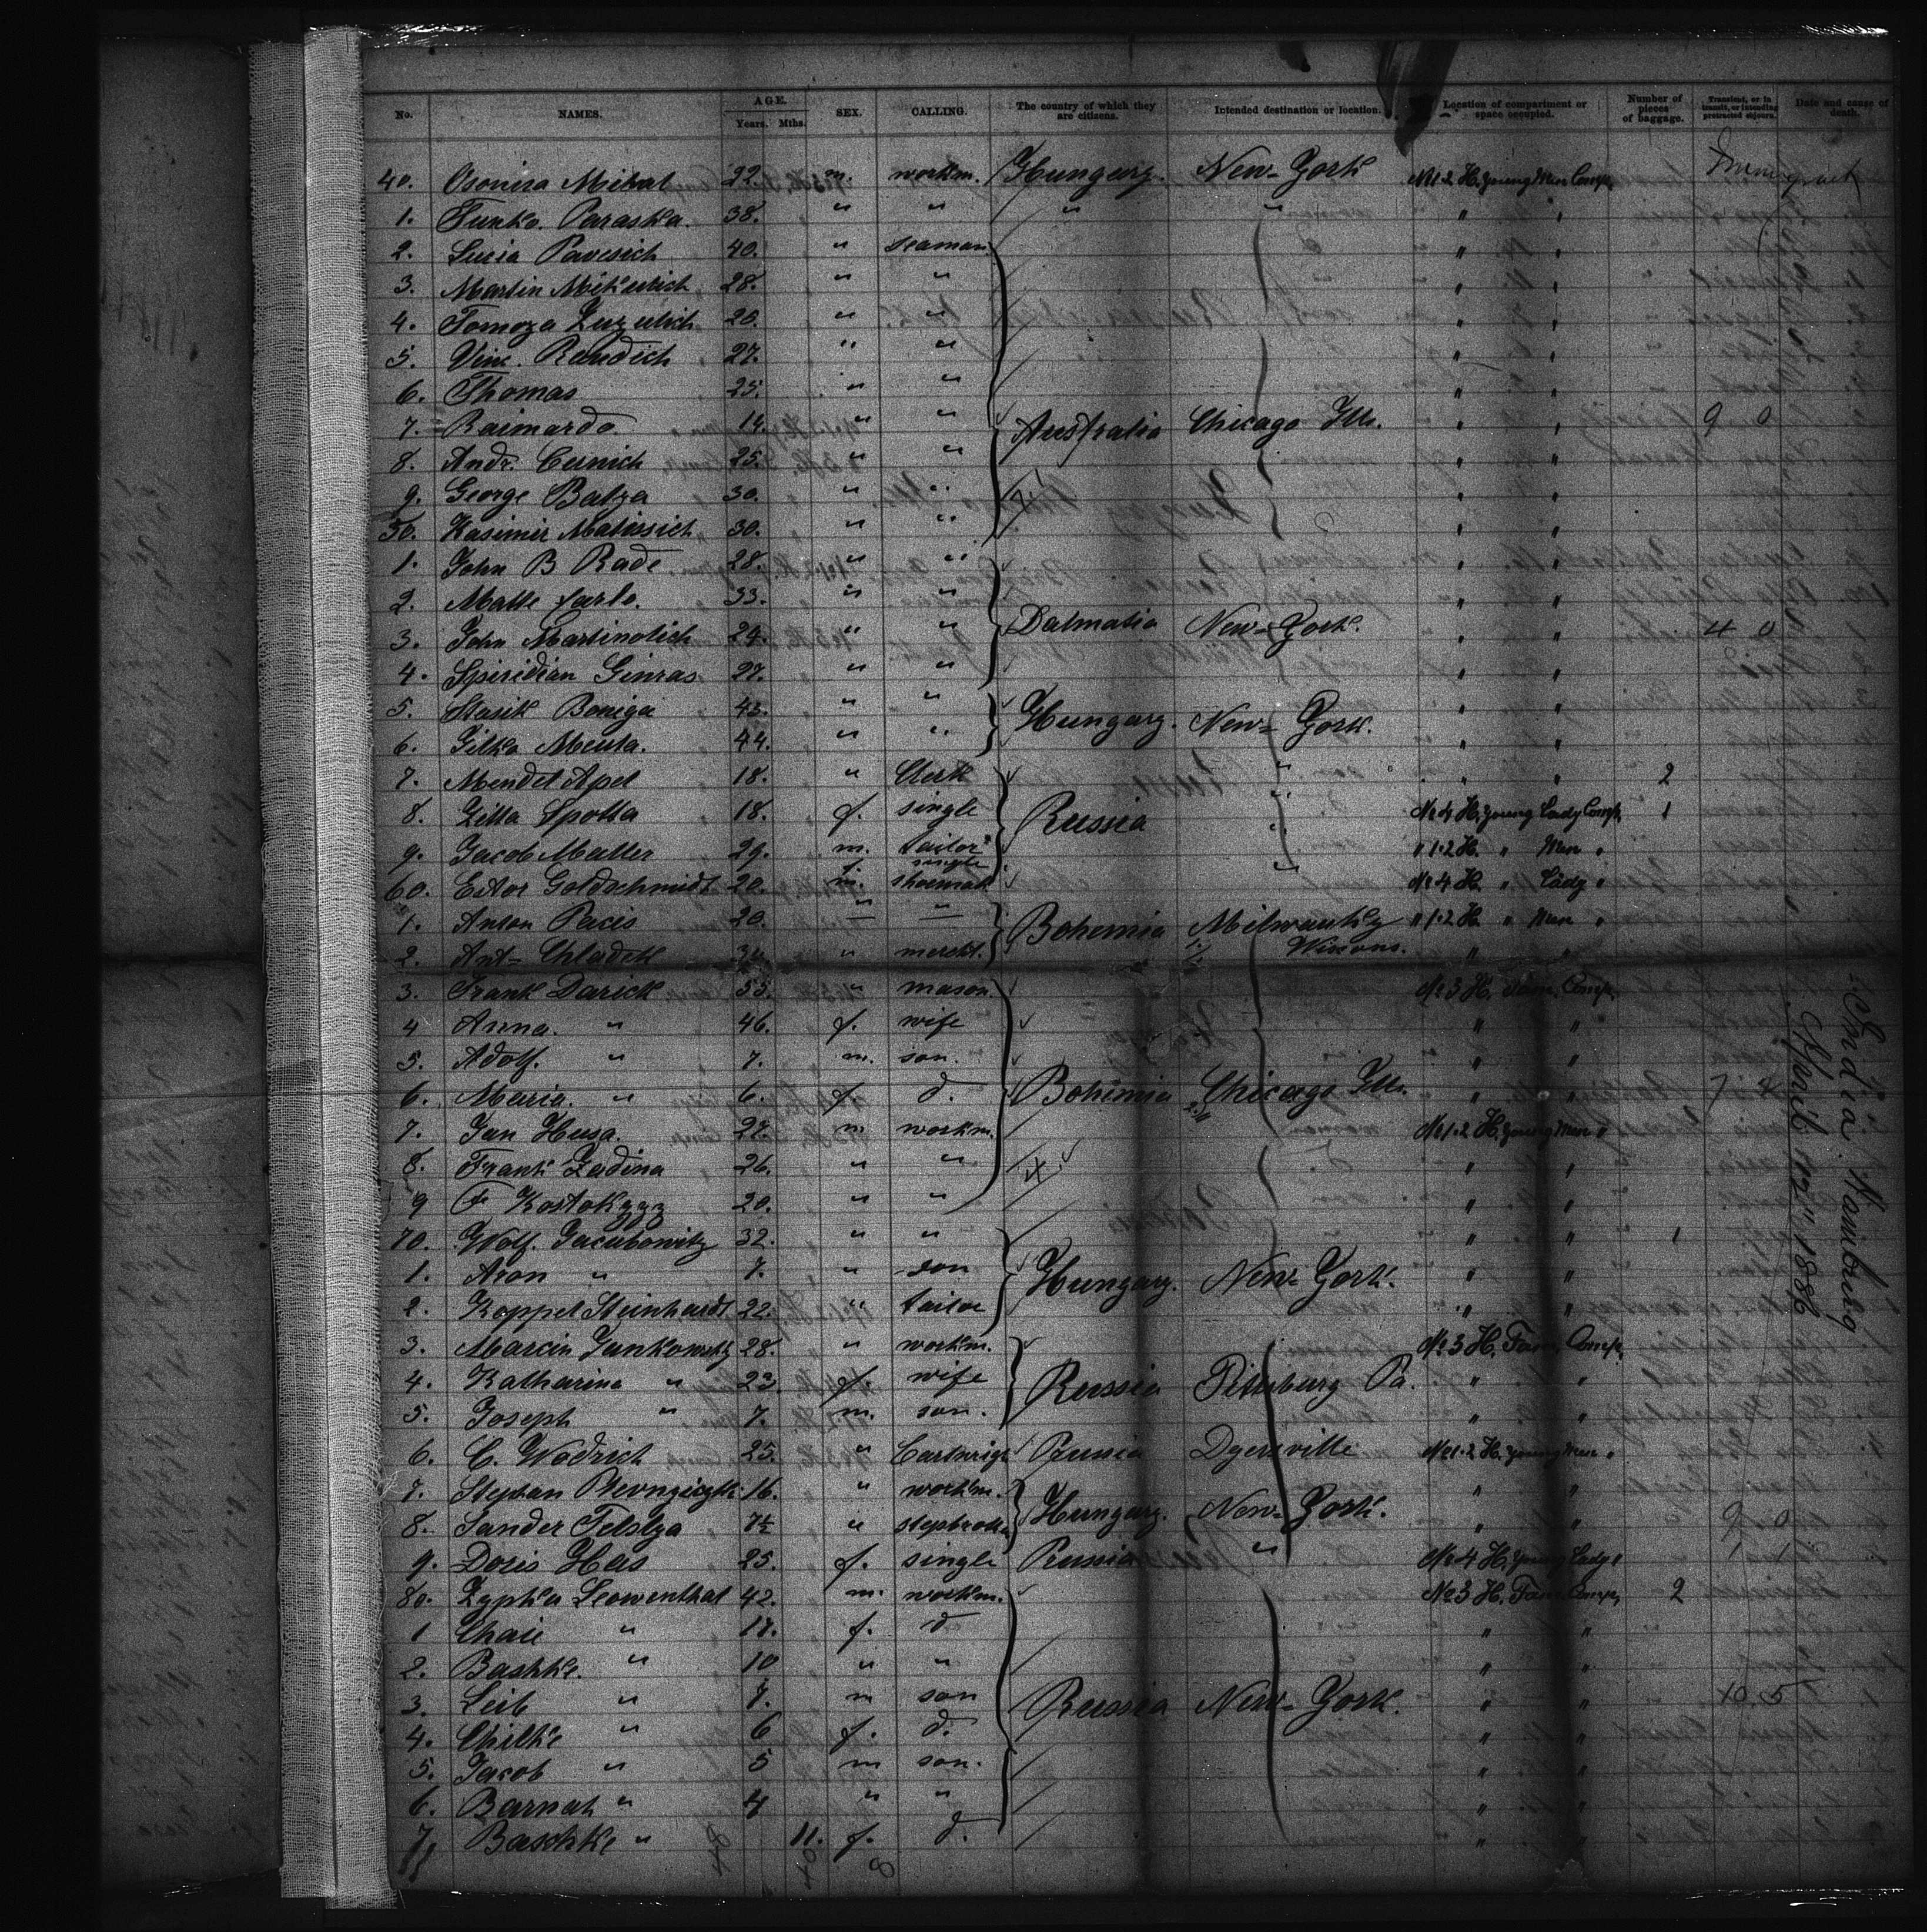 No. NAMES. AGE. Years. Mths. SEX. CALLING. The country of which they are citizens. Intended destination or location. Location of compartment or space occupied. Number of pieces of baggage. Transient, or in transit, or intending protracted sojourn. Date and cause of death.
40. Mihal 22. m. workm. Hungary. New-York No 1.2 H. young Men Comp.
1. Funko. Paraska. 38. " " " " " "
2. Luria Pavesich 40. " seaman " "
3. Martin Mikulich 28. " " " "
4. Tomoza Luzulich 20. " " " "
5. Vinc. Randich 27. " " " "
6. Thomas 25. " " " "
7. Raimardo 14. " " Australia Chicago Ills. " " 9 0
8. Andr. Cernich 25. " " " "
9. George Balza 30. " " " "
50. Kasimir Matissich 30. " " " "
1. John B Rade 28. " " " "
2. Matte Carlo. 33. " " " "
3. John Martinolich 24. " " Dalmatia New-York. " " 4 0
4. Spiridian Ginras 27. " " " "
5. Stasik Boniga 43. " " Hungary. New-York. " "
6. Gilka Meuta. 44. " " " "
7. Mendel Apel 18. " Clerk " " " 2
8. Zilla Spotta 18. f. single Russia " No 4 H. young Lady Comp. 1
9. Jacob Maller 29. m. tailor " " 1.2 H. " Men "
60. Ester Goldschmidt 20. f. single " No 4 H. " Lady "
1. Anton Pacis 20. " " Bohemia Milwauky " 1.2 H. " Men "
2. Ant- Chladek " mercht. Wiscons. " "
3. Frank Darick 55. " mason No 3 H. Fam. Comp.
4 Anna. " 46. f. wife " "
5. Adolf. " 7. m. son. " "
6. Maria. " 6. f d. Bohemia Chicago Ills. " " 7 4
7. Jan Husa. 27. m workm. No 1.2 H. young Men "
8. Frank Zadina 26. " " " "
9 20. " " " "
70. Wolf. Jacubowitz 32. " " " " 1
1. Aron " 7. " son Hungary. New-York. " "
2. Koppel Steinhardt 22. " tailor " "
3. Marcin Jankowsky 28. " workm. No 3 H. Fam. Comp.
4. Katharina " 23. f. wife Russia Pittsburg Pa. " "
5. Joseph " 7. m. son. " "
6. C. Wodrich 25. " Cartwrigh Dyersville No 1.2 H. young Men "
7. Stephan 16. " workm. " "
8. Sander Telslza 7½ " stepbroth. Hungary. New-York. " " 9 0
9. Doris Has 25. f. single Russia " No 4 H. young Lady " 1 1
80. Zypka Leowenthal 42. m. workm. No 3 H. Fam. Comp. 2
1 Chaie " 17. f. d " "
2. Bashke. " 10 " " " "
3. Leib " 7. m son Russia New-York. " " 10 5
4. Chilke " 6 f. d. " "
5. Jacob " 5 m son. " "
6. Barnah " 4 " " " "
7. Baschke " 11. f. d. " "
India Hamburg
April 12" 1886